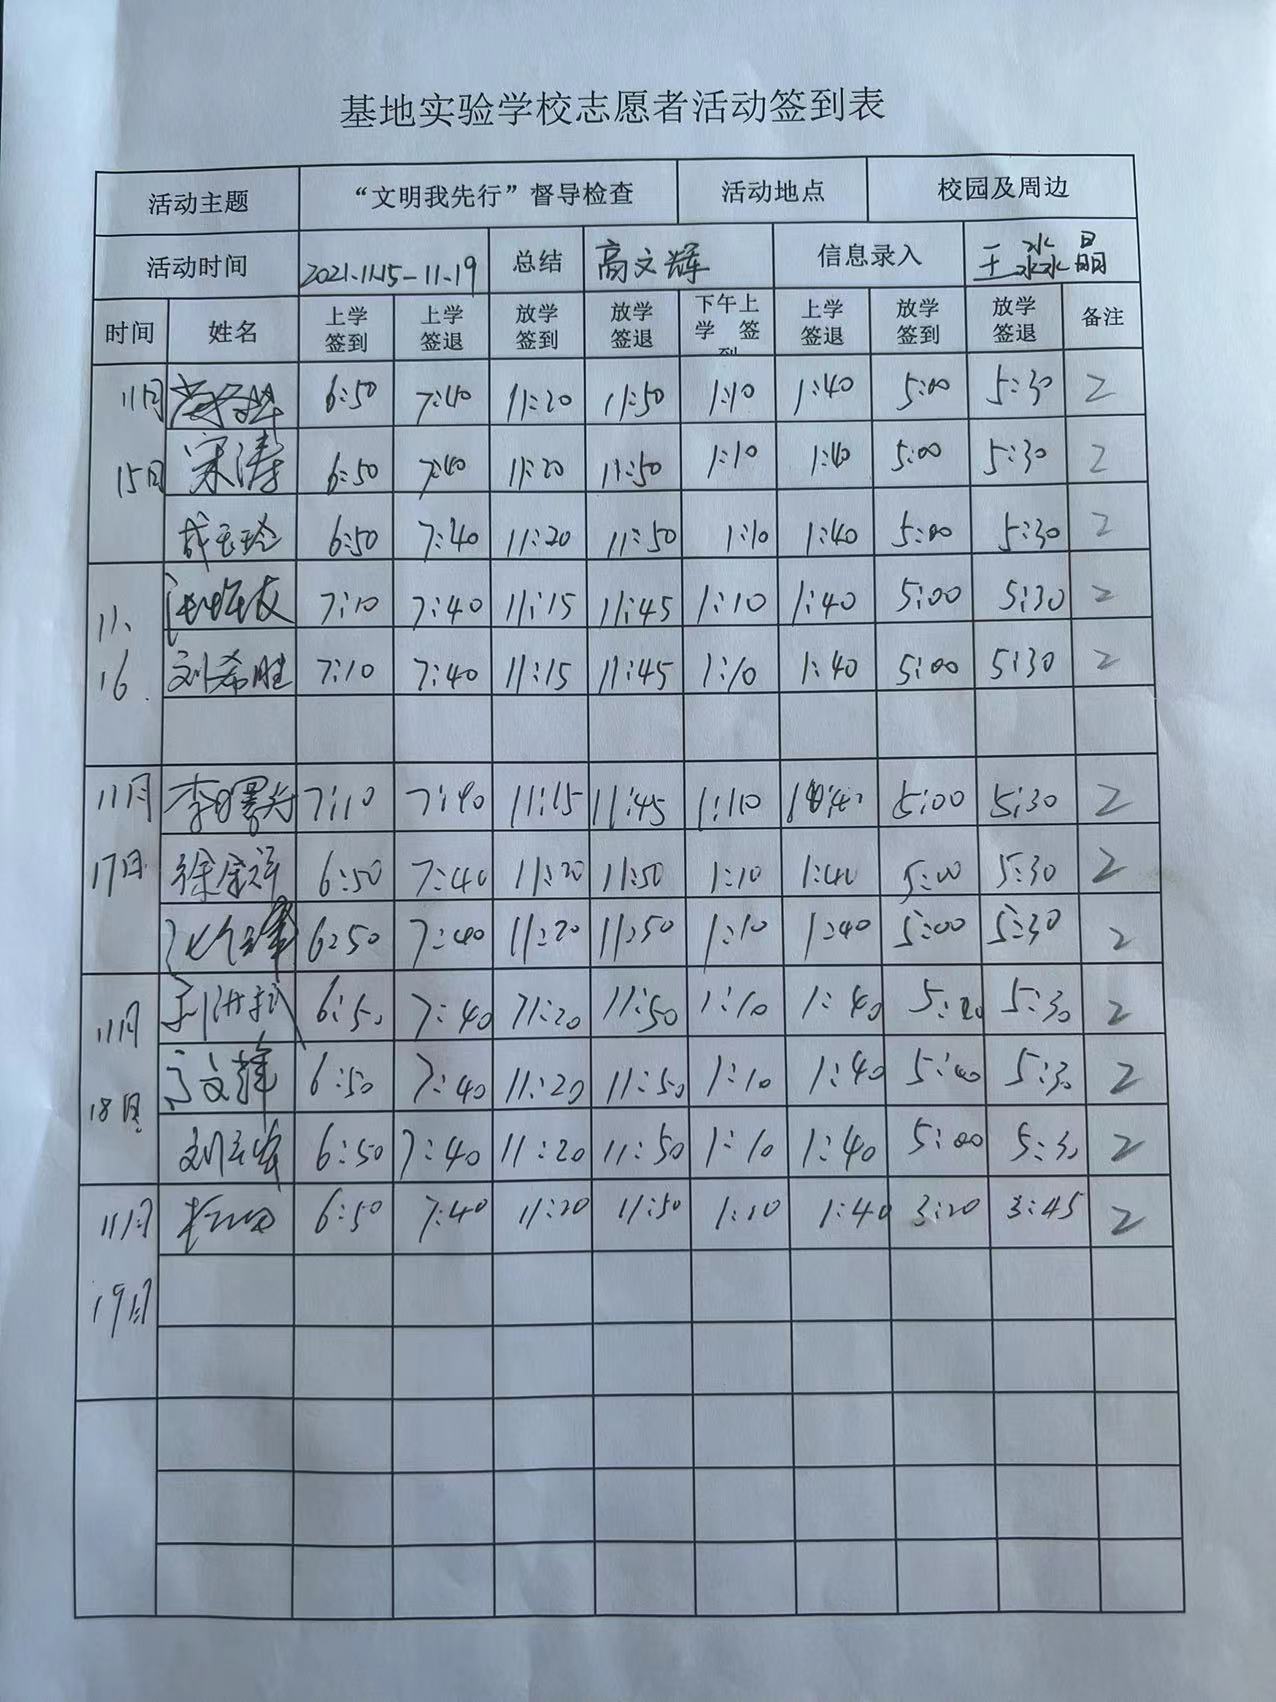 基地实验学校志愿者活动签到表
活动主题 “文明我先行”督导检查 活动地点 校园及周边
活动时间 2021.11.15-11.19 总结 高文辉 信息录入 王淼晶
时间 姓名 上学签到 上学签退 放学签到 放学签退 下午上学 签到 上学签退 放学签到 放学签退 备注
11月15日 6:50 7:40 11:20 11:50 1:10 1:40 5:00 5:30 2
宋涛 6:50 7:40 11:20 11:50 1:10 1:40 5:00 5:30 2
成玉玲 6:50 7:40 11:20 11:50 1:10 1:40 5:00 5:30 2
11.16. 7:10 7:40 11:15 11:45 1:10 1:40 5:00 5:30 2
刘希胜 7:10 7:40 11:15 11:45 1:10 1:40 5:00 5:30 2
11月17日 李曙光 7:10 7:40 11:15 11:45 1:10 5:00 5:30 2
徐金祥 6:50 7:40 11:20 11:50 1:10 1:40 5:00 5:30 2
6:50 7:40 11:20 11:50 1:10 1:40 5:00 5:30 2
11月18日 6:50 7:40 11:20 11:50 1:10 1:40 5:30 2
高文辉 6:50 7:40 11:20 11:50 1:10 1:40 5:00 5:30 2
6:50 7:40 11:20 11:50 1:10 1:40 5:00 5:30 2
11月19日 6:50 7:40 11:20 11:50 1:10 1:40 3:20 3:45 2